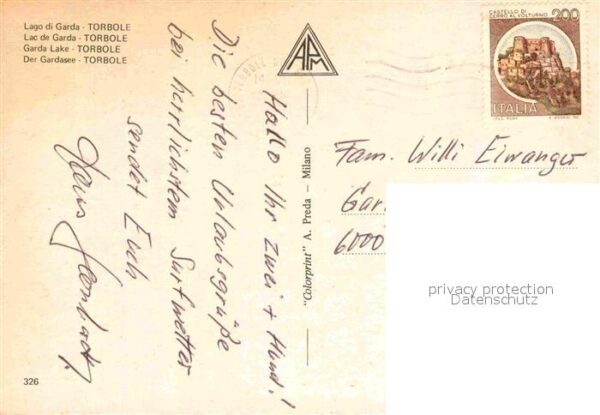 Lago di Garda - TORBOLE
Lac de Garda - TORBOLE
Garda Lake - TORBOLE
Der Gardasee - TORBOLE
APM
CASTELLO DI
CERRO AL VOLTURNO
200
ITALIA
Hallo Ihr zwei + Hund!
Die besten Urlaubsgrüße
bei herrlichstem Surfwetter
sendet Euch
Hans
"Colorprint" A. Preda — Milano
Fam. Willi Eiwanger
Gar
6000
privacy protection
Datenschutz
326